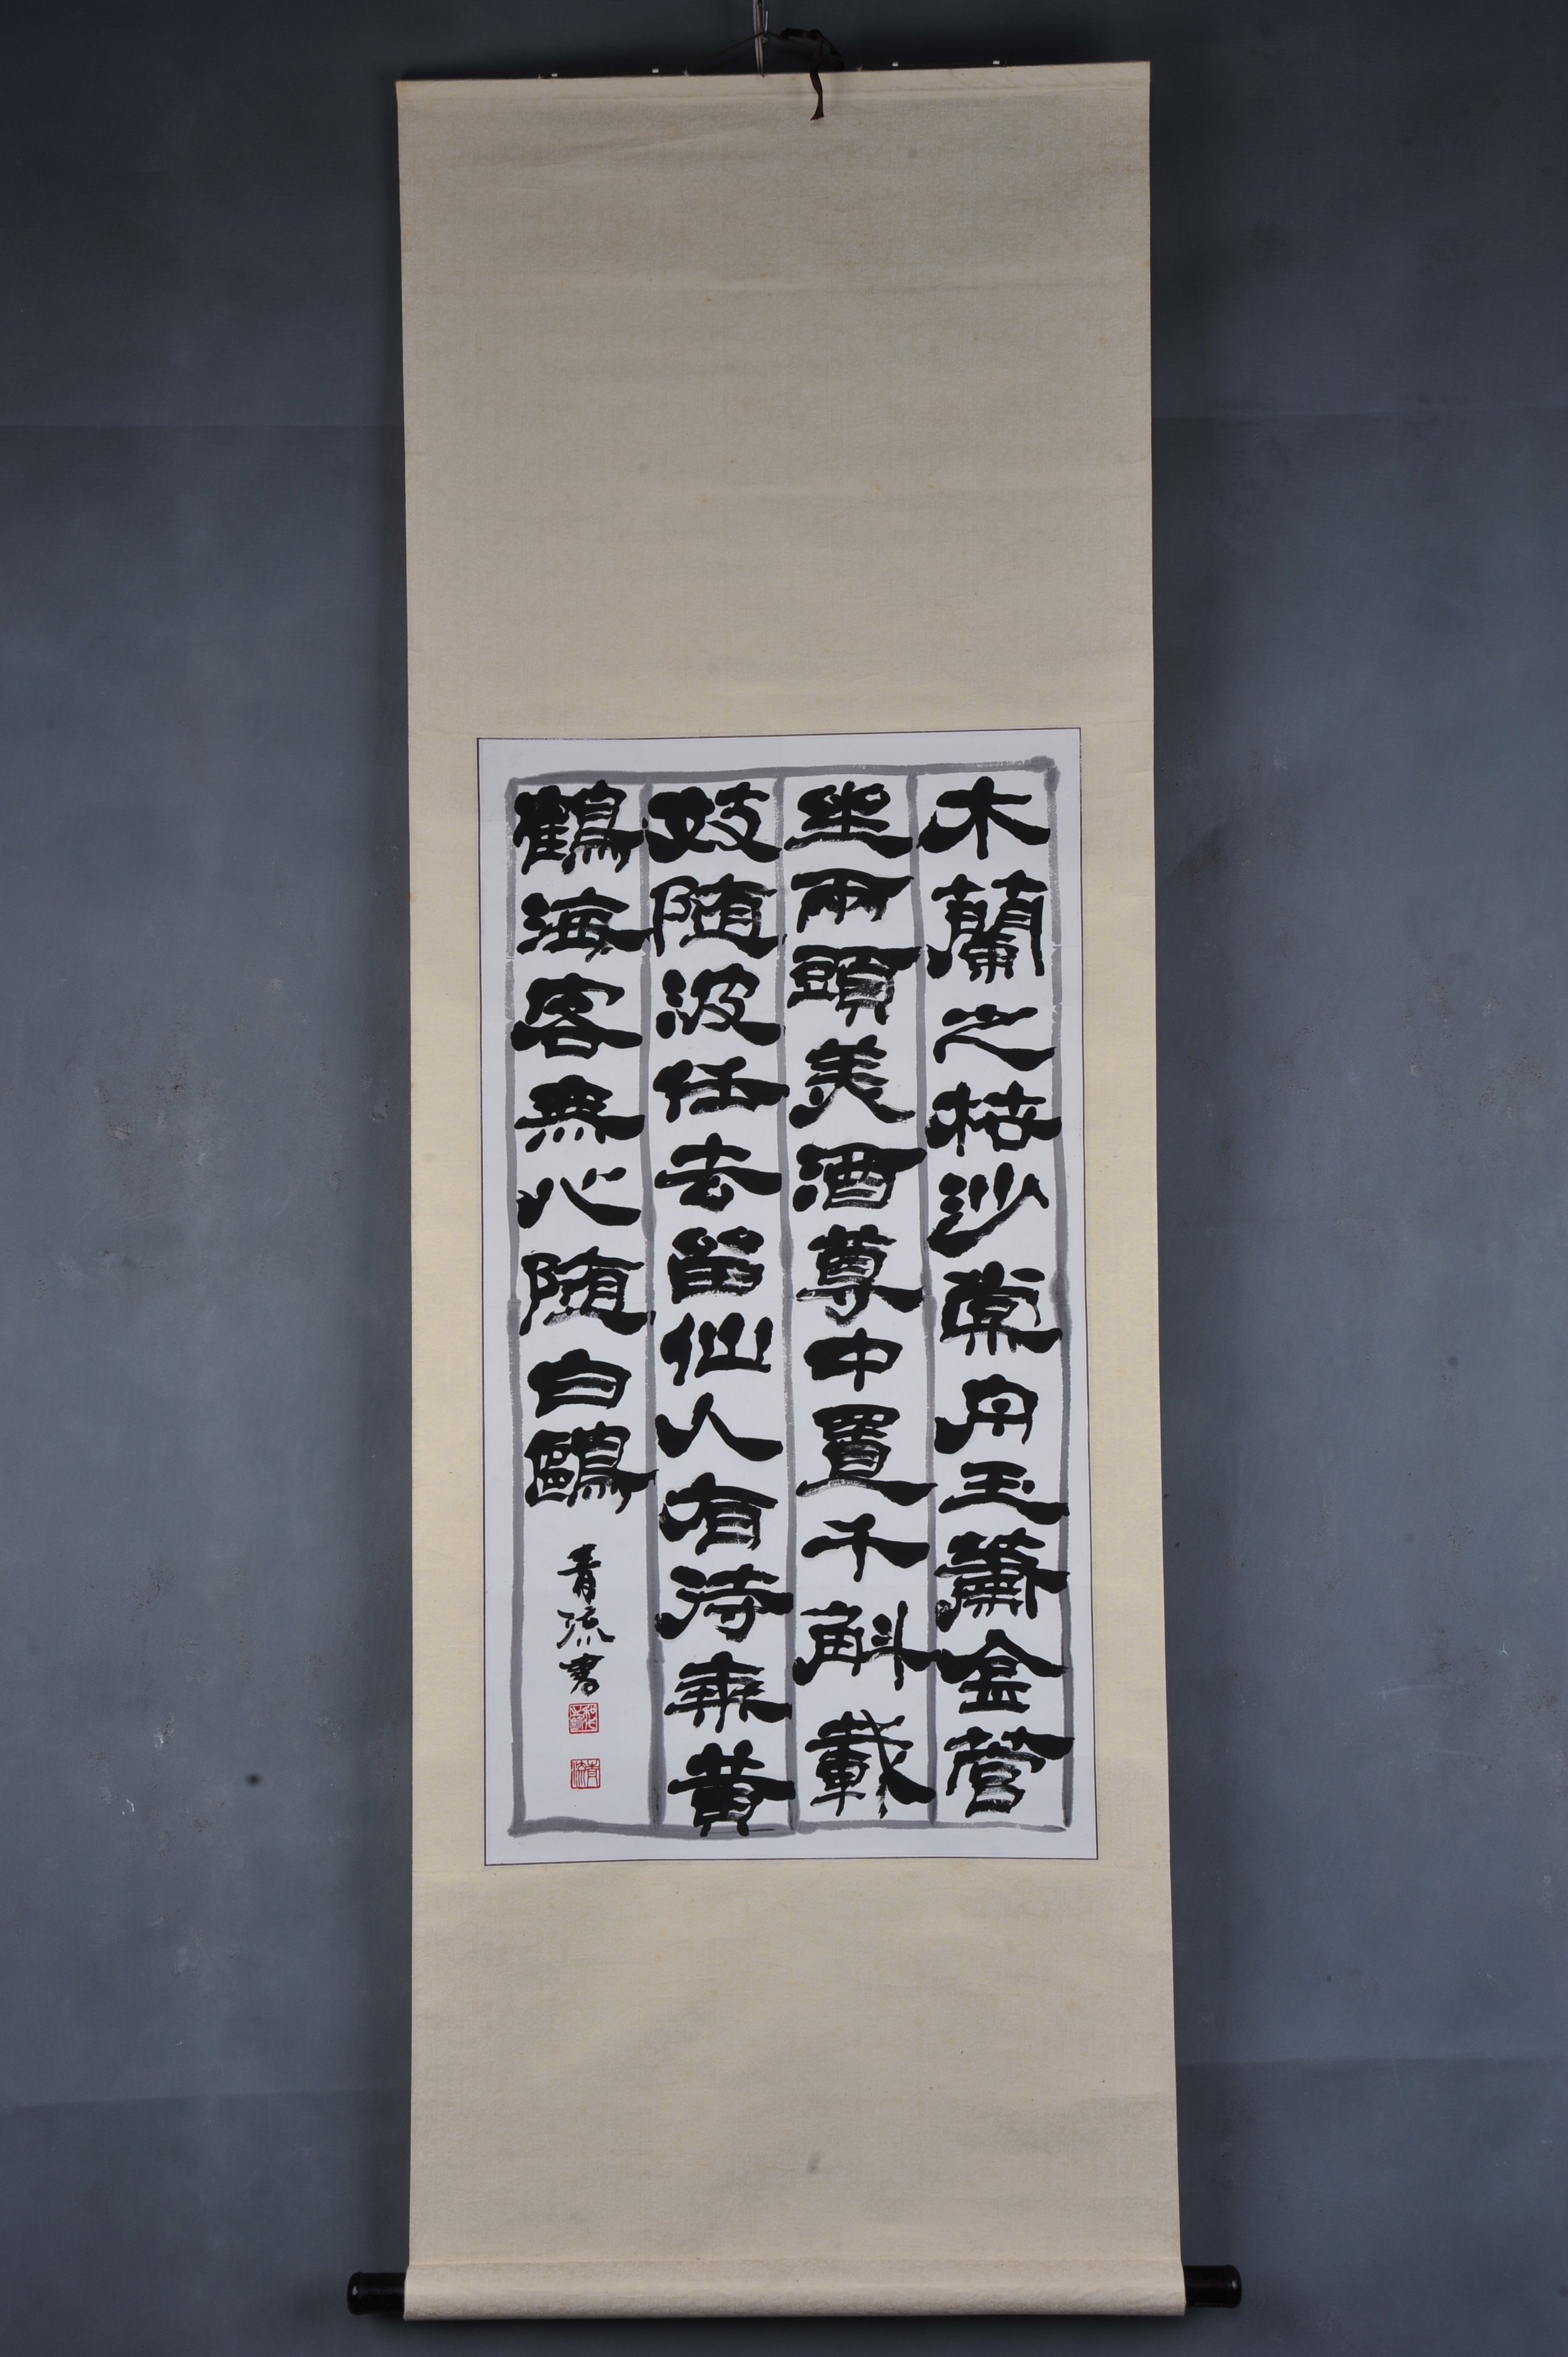 木蘭之枻沙棠舟玉簫金管
坐兩頭美酒尊中置千斛載
妓随波任去留仙人有待乘黄
鶴海客無心随白鷗
青流書
青流